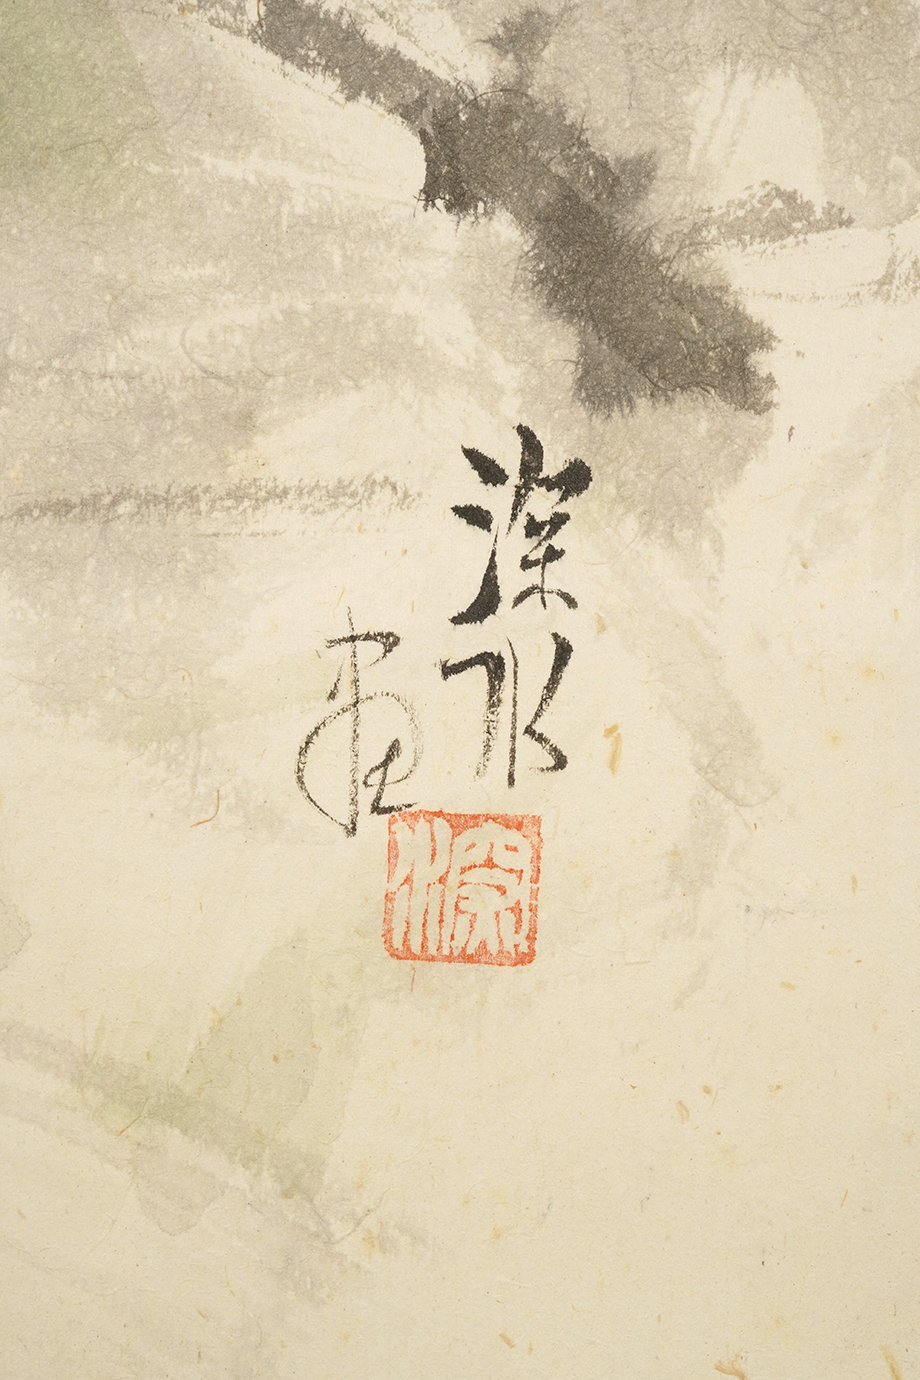 深水
画
深水